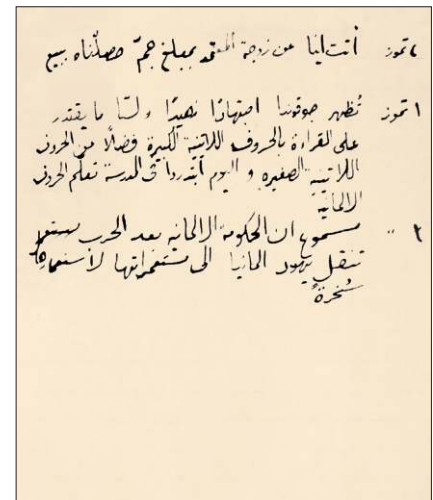 تموز أتت لنا عن زوجة المعتمد بمبلغ جمّ حصلناه ببيع
١ تموز تُظهر اجتهادًا ولسّا ما يقتدر
على القراءة بالحروف اللاتنية الكبيرة فضلًا من الحروف
اللاتينية الصغيره و اليوم فى المدرسة تعلّم الحروف
الالمانية
٢ " مسموع ان الحكومة الالمانيه بعد الحرب
تنقل يهود المانيا الى مستعمراتها لاستعمالهم
سُخرةً